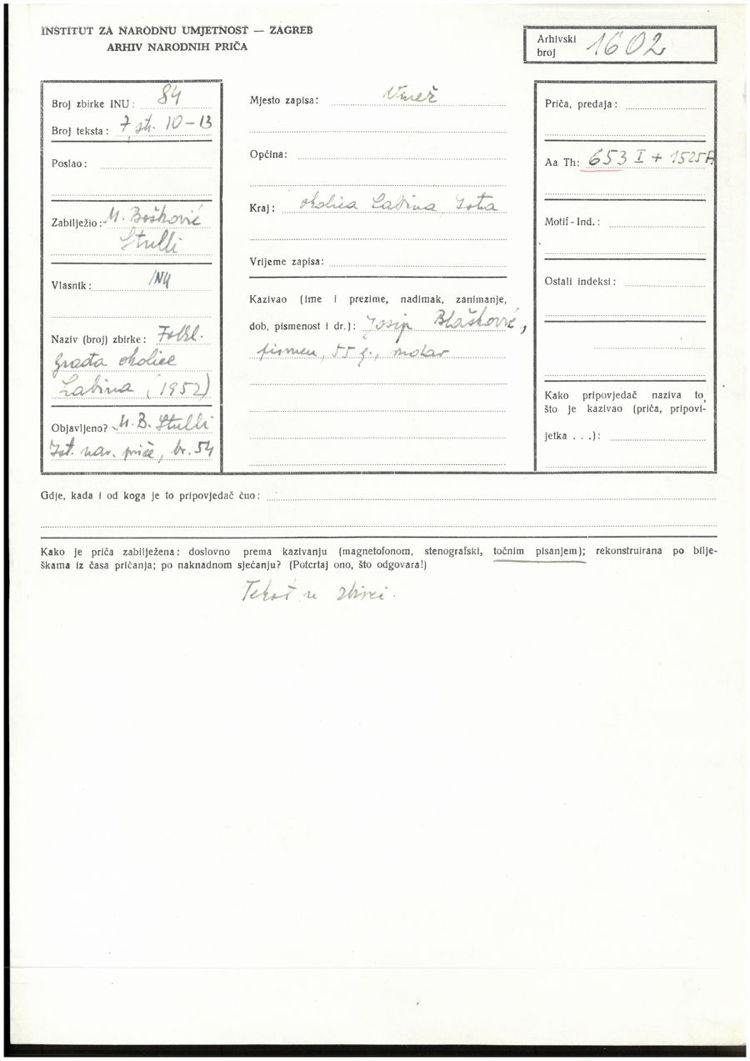 INSTITUT ZA NARODNU UMJETNOST — ZAGREB
ARHIV NARODNIH PRIČA
Arhivski broj 1602
Broj zbirke INU: 84
Broj teksta: 7, str. 10-13
Poslao:
Zabilježio: M. Bošković
Stulli
Vlasnik: INU
Naziv (broj) zbirke: Folkl.
građa okolice
Labina, (1952)
Objavljeno? M. B. Stulli
Ist. nar. priče, br. 54
Mjesto zapisa:
Općina:
Kraj: okolica Labina, Istra
Vrijeme zapisa:
Kazivao (ime i prezime, nadimak, zanimanje,
dob, pismenost i dr.): Josip Blašković,
pismen, 55 g.,
Priča, predaja:
Aa Th: 653 I + 1525A
Motif-Ind.:
Ostali indeksi:
Kako pripovjedač naziva to,
što je kazivao (priča, pripovi-
jetka . . .):
Gdje, kada i od koga je to pripovjedač čuo:
Kako je priča zabilježena: doslovno prema kazivanju (magnetofonom, stenografski, točnim pisanjem); rekonstruirana po bilje-
škama iz časa pričanja; po naknadnom sjećanju? (Potcrtaj ono, što odgovara!)
Tekst u zbirci.